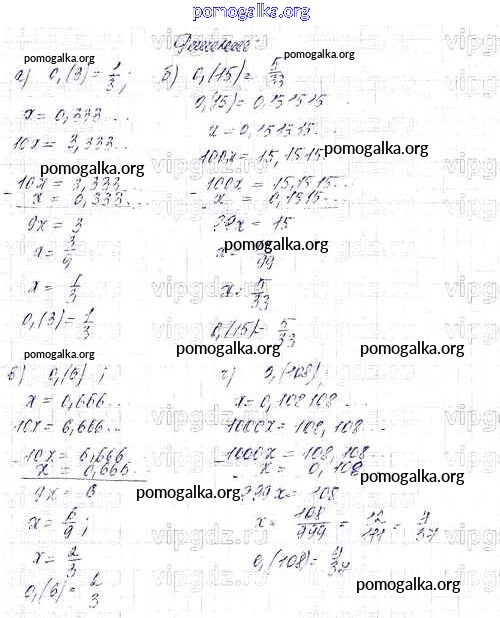 pomogalka.org
Решение:
pomogalka.org
а) 0,(3) = 1/3;
x = 0,333...
10x = 3,333...
pomogalka.org
10x = 3,333...
- x = 0,333...
9x = 3
x = 3/9
x = 1/3
0,(3) = 1/3
pomogalka.org
б) 0,(15) = 5/33
0,(15) = 0,151515...
x = 0,151515...
100x = 15,1515...
pomogalka.org
- 100x = 15,1515...
x = 0,1515...
99x = 15
pomogalka.org
x = 99
x = 5/33
0,(15) = 5/33
pomogalka.org
pomogalka.org
pomogalka.org
в) 0,(6);
x = 0,666...
10x = 6,666...
- 10x = 6,666...
x = 0,666...
9x = 6
x = 6/9;
x = 2/3
0,(6) = 2/3
г) 0,(108)
x = 0,108108...
1000x = 108,108...
- 1000x = 108,108...
x = 0,108
pomogalka.org
pomogalka.org
999x = 108
x = 108/999 = 12/111 = 4/37
0,(108) = 4/37
pomogalka.org